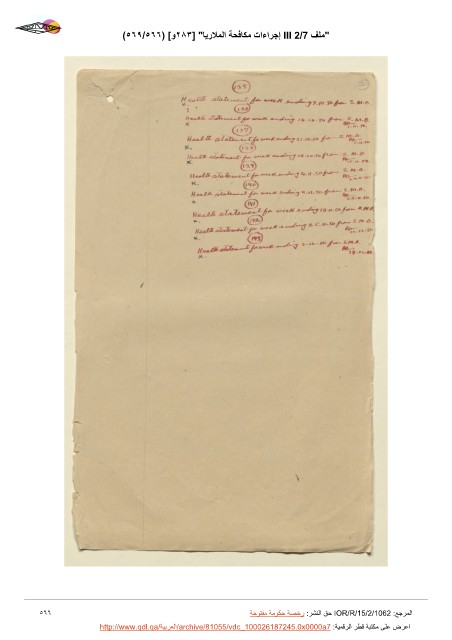 "ملف 2/7 III إجراءات مكافحة الملاريا" [٢٨٣و] (٥٦٩/٥٦٦)
135
Health statement for week ending from S.M.O.
136
Health statement for week ending 14-10-50 from S.M.O.
137
Health statement for week ending 21-10-50 from S.M.O.
138
Health statement for week ending 28-10-50 from S.M.O.
139
Health statement for week ending 4-11-50 from S.M.O.
140
Health statement for week ending 11-11-50 from S.M.O.
141
Health statement for week ending from S.M.O.
142
Health statement for week ending from S.M.O.
143
Health statement for week ending 2-12-50 from S.M.O.
المرجع: IOR/R/15/2/1062 حق النشر: رخصة حكومة مفتوحة
٥٦٦
اعرض على مكتبة قطر الرقمية: http://www.qdl.qa/العربية/archive/81055/vdc_100026187245.0x0000a7